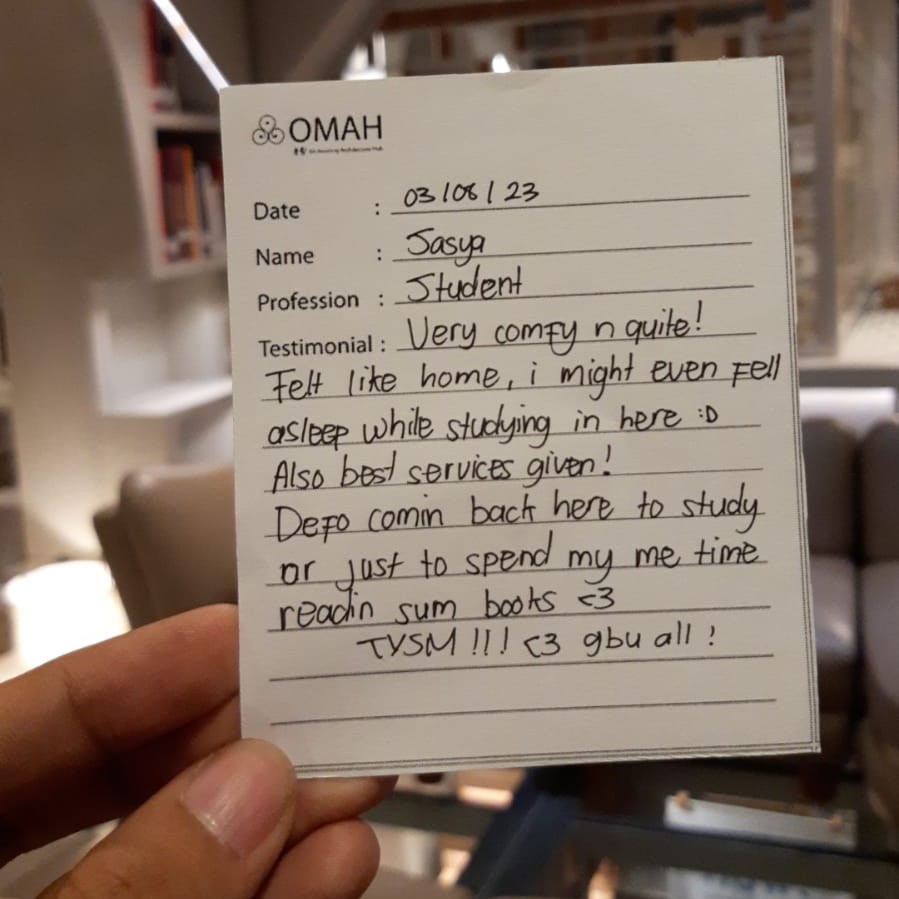 OMAH
Date : 03/08/23
Name : Sasya
Profession : Student
Testimonial : Very comfy n quite!
Felt like home, i might even fell
asleep while studying in here :D
Also best services given!
Defo comin back here to study
or just to spend my me time
readin sum books <3
TYSM!!! <3 gbu all!